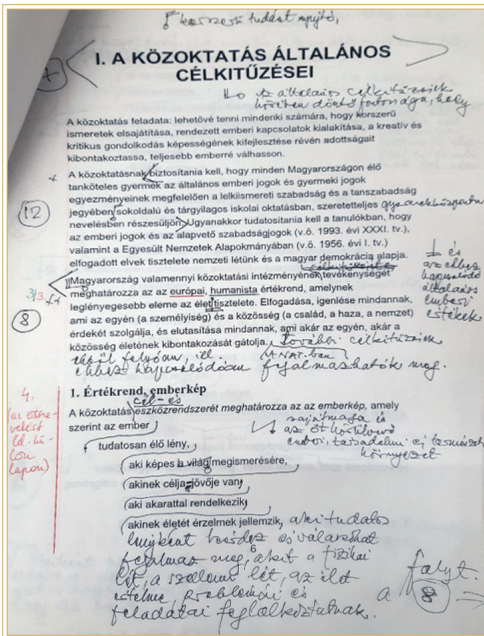 korszerű tudást nyújtó,
I. A KÖZOKTATÁS ÁLTALÁNOS
CÉLKITŰZÉSEI
Az általános célkitűzések
körében döntő fontosságú, hogy
A közoktatás feladata: lehetővé tenni mindenki számára, hogy korszerű
ismeretek elsajátítása, rendezett emberi kapcsolatok kialakítása, a kreatív és
kritikus gondolkodás képességének kifejlesztése révén adottságait
kibontakoztassa, teljesebb emberré válhasson.
A közoktatásnak biztosítania kell, hogy minden Magyarországon élő
tanköteles gyermek az általános emberi jogok és gyermeki jogok
egyezményeinek megfelelően a lelkiismereti szabadság és a tanszabadság
12
jegyében sokoldalú és tárgyilagos iskolai oktatásban, szeretetteljes gyermekközpontú
nevelésben részesüljön. Ugyanakkor tudatosítania kell a tanulókban, hogy
az emberi jogok és az alapvető szabadságjogok (v.ö. 1993. évi XXXI. tv.),
valamint a Egyesült Nemzetek Alapokmányában (v.ö. 1956. évi I. tv.)
elfogadott elvek tisztelete nemzeti létünk és a magyar demokrácia alapja.
és
célkitűzéseit
azokhoz
Magyarország valamennyi közoktatási intézményének tevékenységét
kapcsolódó
meghatározza az az európai, humanista értékrend, amelynek
általános
8
leglényegesebb eleme az élet tisztelete. Elfogadása, igenlése mindannak,
emberi
ami az egyén (a személyiség) és a közösség (a család, a haza, a nemzet)
értékek
érdekét szolgálja, és elutasítása mindannak, ami akár az egyén, akár a
közösség életének kibontakozását gátolja. További célkitűzések
ebből folyóan, ill. (A NAT-ban)
ehhez kapcsolódóan fogalmazhatók meg.
4.
1. Értékrend, emberkép
cél- és
A közoktatás eszközrendszerét meghatározza az az emberkép, amely
szerint az ember
sajátmaga és
az őt körülvevő
emberi, társadalmi és természeti
környezet
tudatosan élő lény,
aki képes a világ megismerésére,
akinek célja, jövője van,
aki akarattal rendelkezik,
akinek életét érzelmek jellemzik, aki tudatos
lényként kérdez és válaszokat
fogalmaz meg, akit a fizikai
6
lét, a szellemi lét, az élet
értelme, problémái és
feladatai foglalkoztatnak.
a folyt.
8